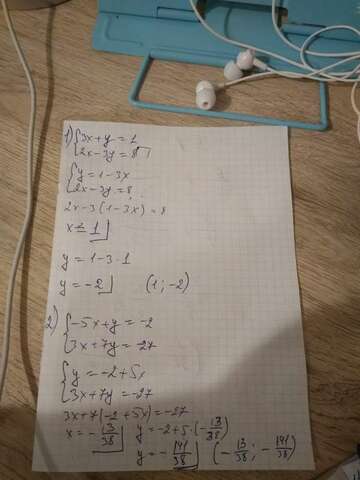 1) {3x+y=1
2x-3y=8
{y=1-3x
2x-3y=8
2x-3(1-3x)=8
x=1
y=1-3·1
y=-2 (1;-2)
2) {-5x+y=-2
3x+7y=-27
{y=-2+5x
3x+7y=-27
3x+7(-2+5x)=-27
x=-13/38 y=-2+5·(-13/38)
y=-141/38 (-13/38; -141/38)